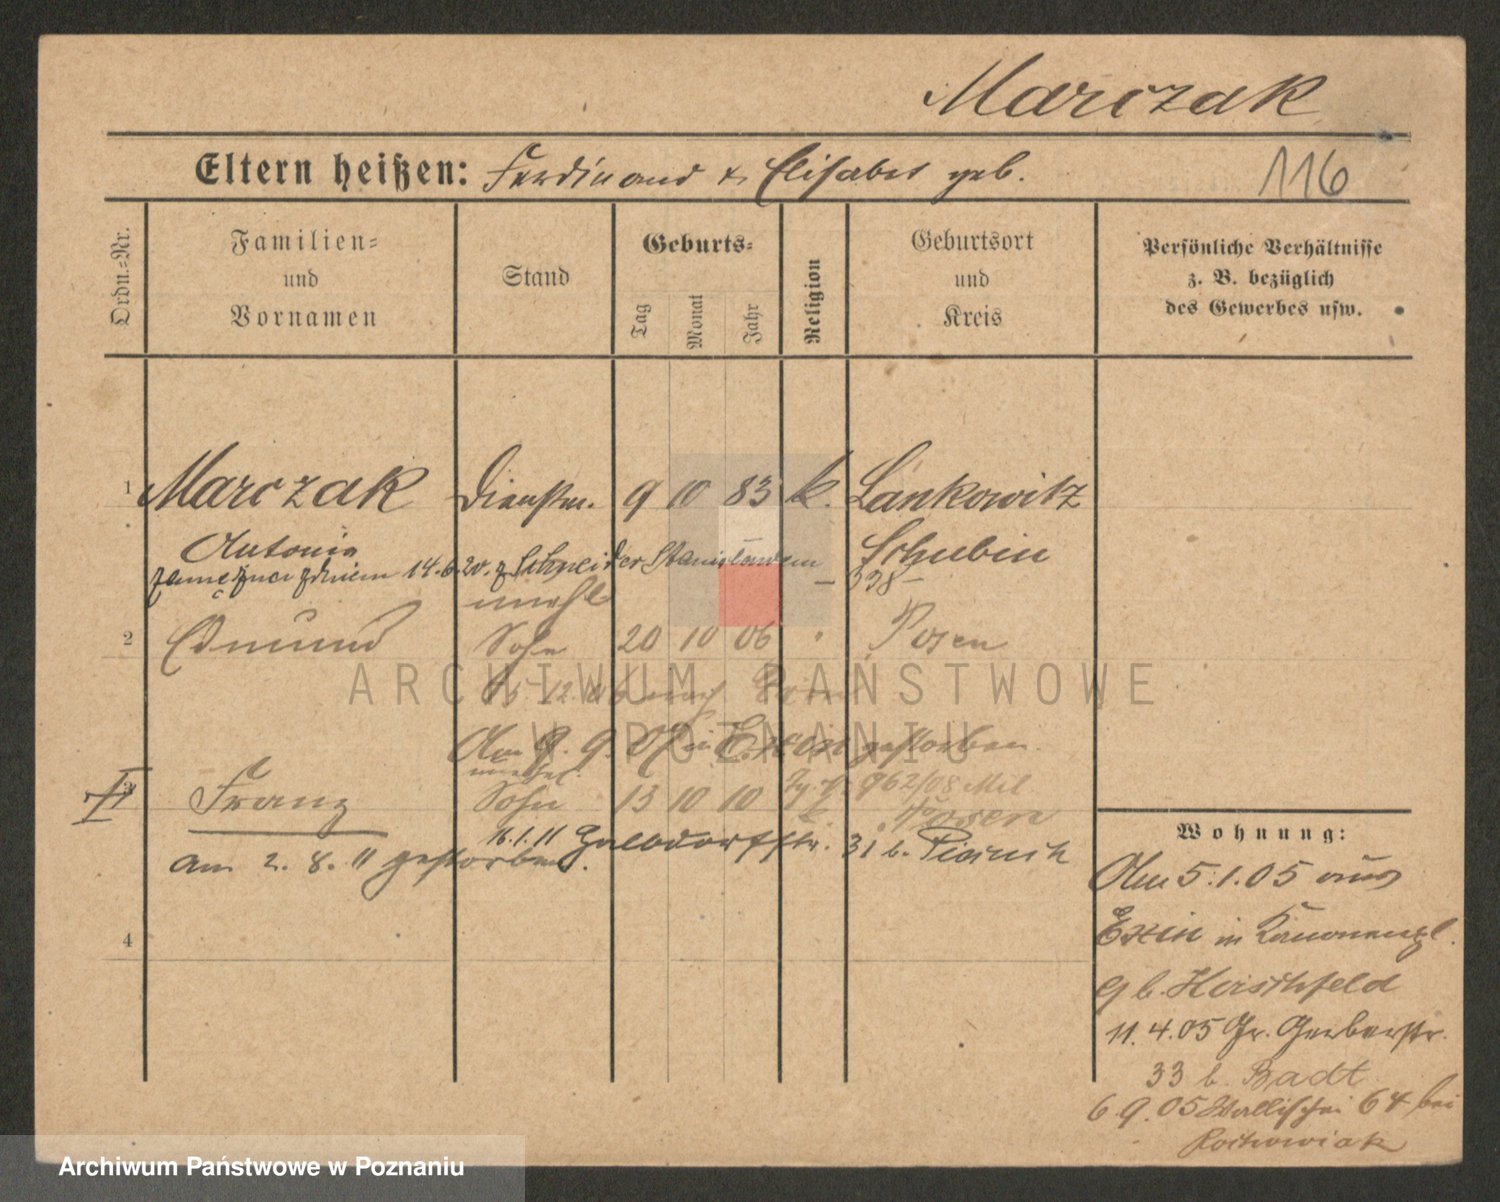 Marczak
Eltern heißen: Ferdinand & Elisabet geb.
116
Ordn.-Nr.
Familien-
und
Vornamen
Stand
Geburts-
Tag
Monat
Jahr
Religion
Geburtsort
und
Kreis
Persönliche Verhältnisse
z. B. bezüglich
des Gewerbes usw.
1 Marczak Dienstm. 9 10 83 k. Lankowitz
Antonia Schubin
14.6.20. z Schneider Stanisławem – 338 –
unehl
2 Edmund Sohn 20 10 06 " Posen
12. 06 nach
Am 9. 9. 07 in Exin gestorben.
unehel. 962/08 Mil
3 Franz Sohn 13 10 10 k. Posen
16.1.11 31 b.
am 2. 8. 11 gestorben.
4
Wohnung:
Am 5.1.05 aus
Exin in
9 b. Hirschfeld
11.4.05 Gr. Gerberstr.
33 b. Badt
6.9.05 Wallischei 64 bei
Rochowiak
ARCHIWUM PAŃSTWOWE
W POZNANIU
Archiwum Państwowe w Poznaniu